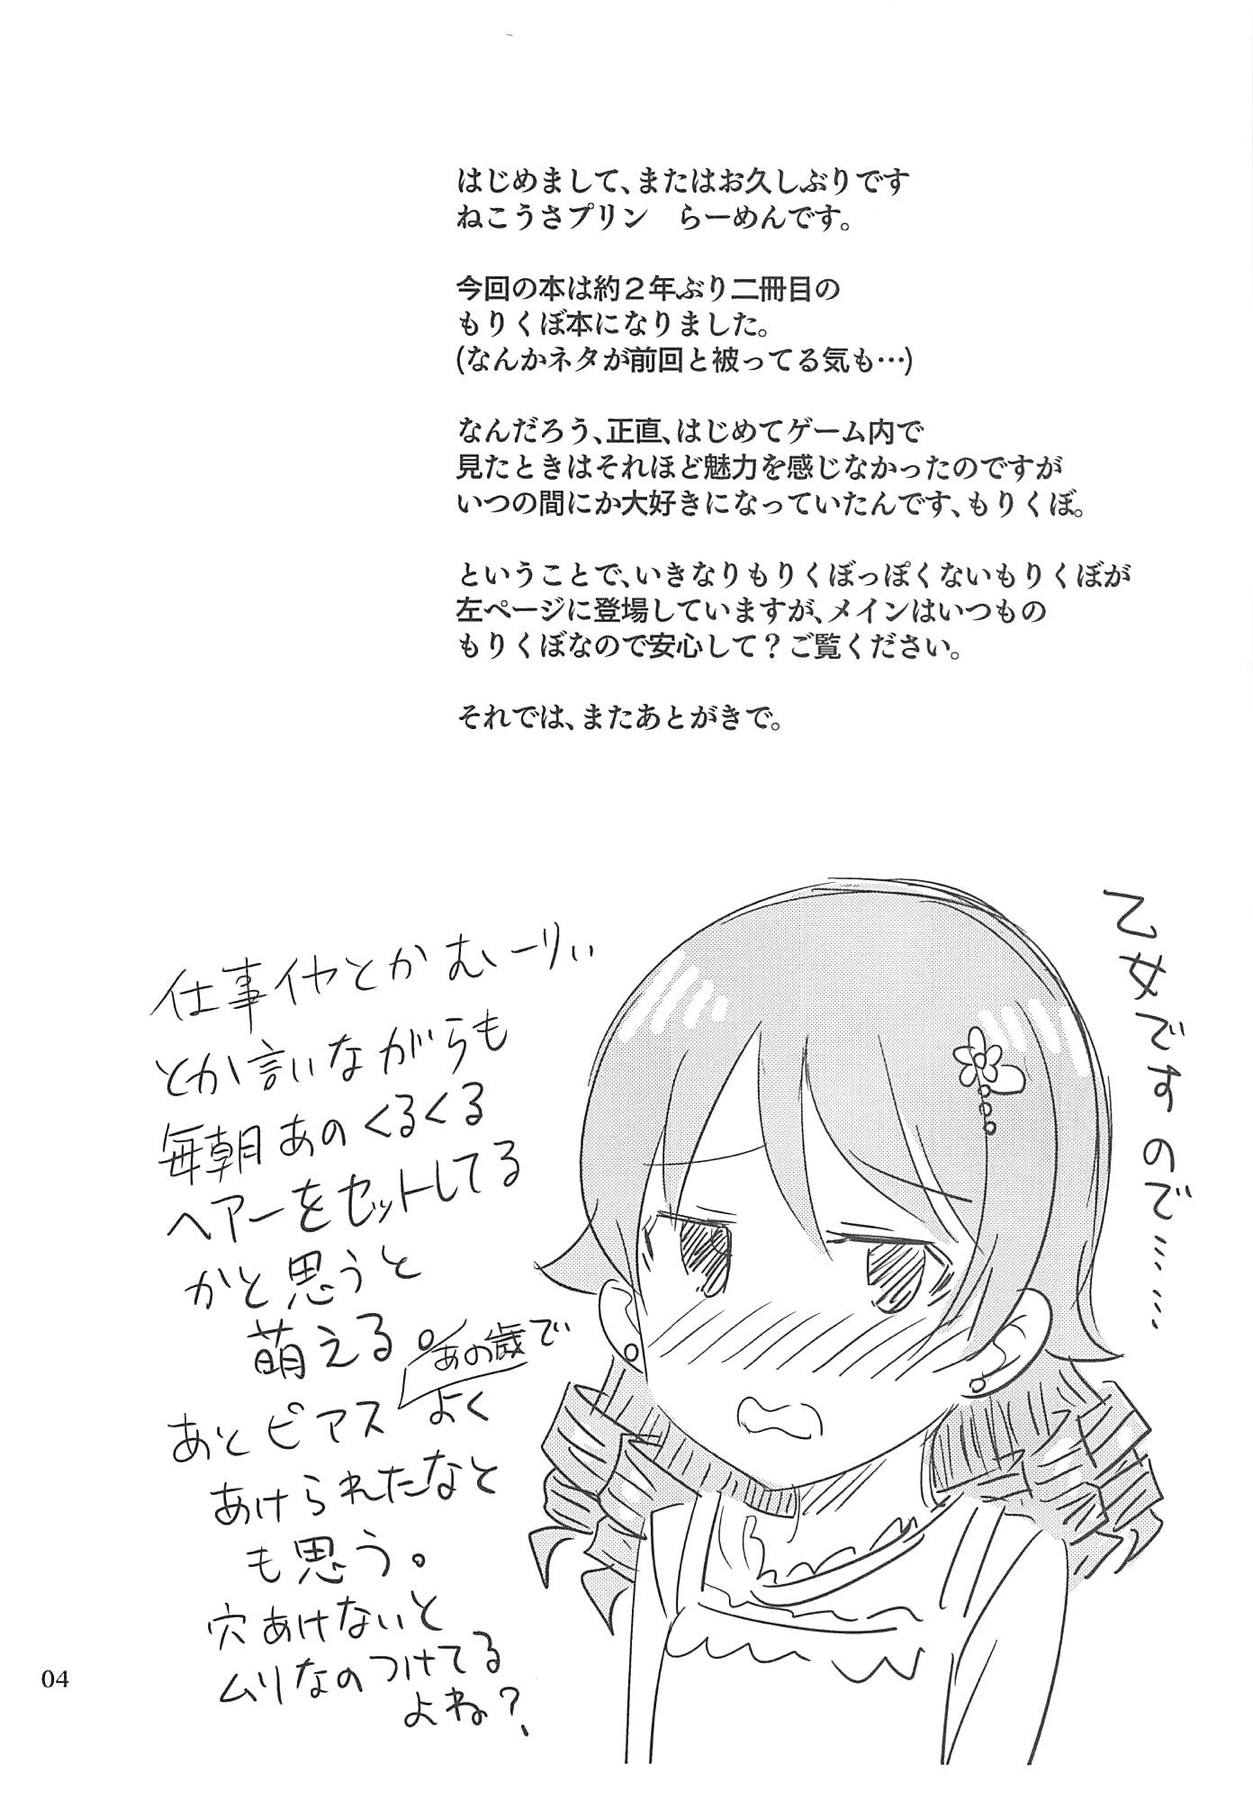 はじめまして、またはお久しぶりです
ねこうさプリン　らーめんです。
今回の本は約２年ぶり二冊目の
もりくぼ本になりました。
(なんかネタが前回と被ってる気も…)
なんだろう、正直、はじめてゲーム内で
見たときはそれほど魅力を感じなかったのですが
いつの間にか大好きになっていたんです、もりくぼ。
ということで、いきなりもりくぼっぽくないもりくぼが
左ページに登場していますが、メインはいつもの
もりくぼなので安心して？ご覧ください。
それでは、またあとがきで。
乙女ですので……
仕事イヤとかむーりぃ
とか言いながらも
毎朝あのくるくる
ヘアーをセットしてる
かと思うと
萌える。
あとピアス
あの歳で
よく
あけられたなと
も思う。
穴あけないと
ムリなのつけてる
よね?、
04